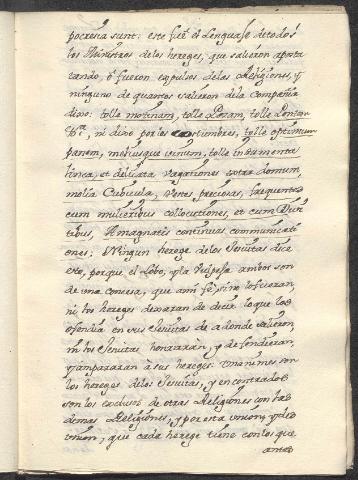 pocresia sunt: este fue el lenguaje detodos
los Ministros delos hereges, que salieron aposta
tando, ò fueron expulsos delas Religiones, y
ninguno de quantos salieron dela Compañia
dixo: tolle molinam, tolle Lezam, tolle
&ra. ni dixo por las costumbres, tolle optimum
panem, meliusque vinum, tolle indumenta
linea, et delicata vagationes extra domum,
mollia Cubicula, vestes preciosas, frequentes
cum mulieribus collocutiones, et cum
tibus, Amagnatis continuas communicati
ones: Ningun herege delos Jesuitas dice
esto, porque el Lobo, y la Vulpeja ambos son
de una conseja, que ami fè, sino lo fueran,
ni los hereges dexaran de decir lo que los
ofendia en sus Jesuitas de adonde salieron,
ni los Jesuitas honraràn, y defendieran,
y ampararan à sus hereges: Unanimes son
los hereges delos Jesuitas, y encontrados
son los exclusos de otras Religiones con las
demas Religiones, y por esta union, y des
union, que cada herege tiene conlos que
antes